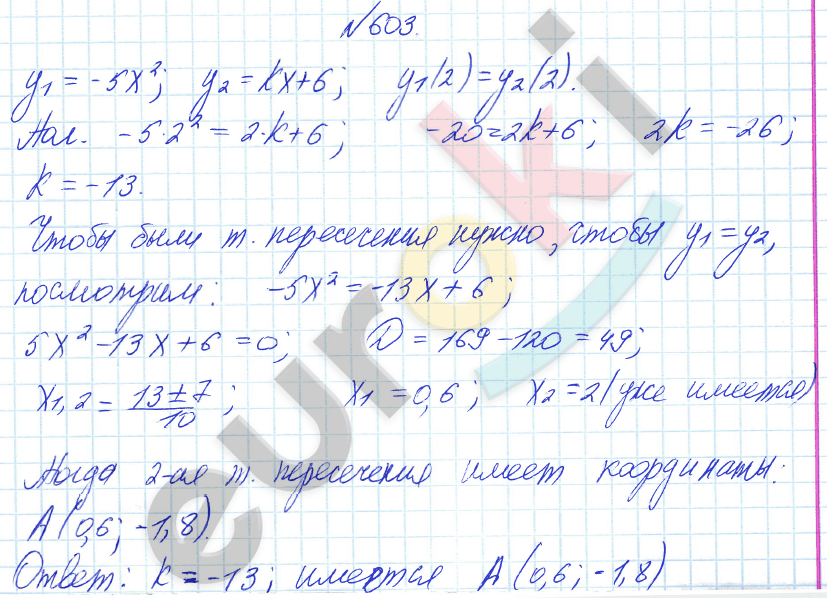 №603.
y₁ = -5x²; y₂ = kx+6; y₁(2) = y₂(2).
Пол. -5·2² = 2·k+6; -20=2k+6; 2k = -26;
k = -13.
Чтобы были т. пересечения нужно, чтобы y₁ = y₂,
посмотрим: -5x² = -13x + 6;
5x² -13x +6 =0; D = 169 -120 = 49;
x₁,₂ = (13±7)/10; x₁ = 0,6; x₂ = 2 (уже имеется)
Тогда 2-ая т. пересечения имеет координаты:
A(0,6; -1,8).
Ответ: k = -13; имеется A(0,6; -1,8)
euroki